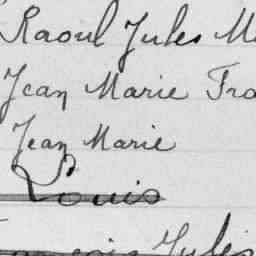 Raoul Jules M
Jean Marie Fra
Jean Marie
Louis
François Jules